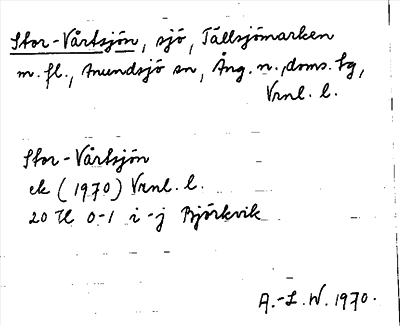 Stor-Vårtsjön, sjö, Tällsjömarken
m.fl., Anundsjö sn, Ång. n. doms. tg,
Vrnl. l.
Stor-Vårtsjön
ek (1970) Vrnl. l.
20 H 0-1 i-j Björkvik
A.-L. W. 1970.